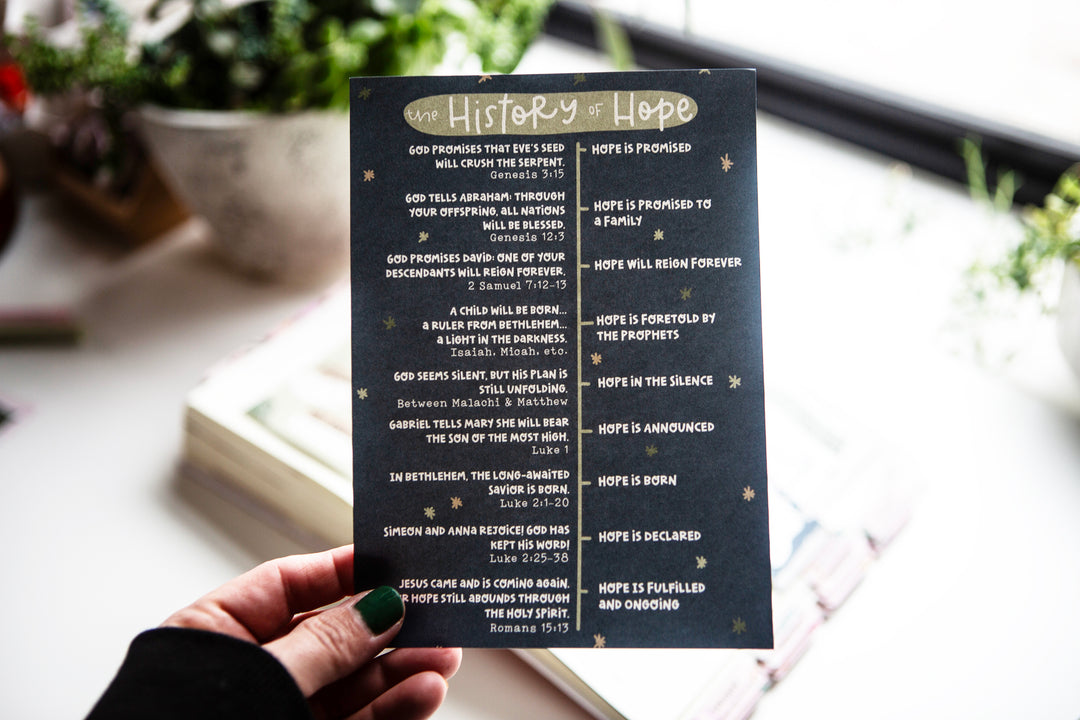 the History of Hope
GOD PROMISES THAT EVE'S SEED
WILL CRUSH THE SERPENT.
Genesis 3:15
HOPE IS PROMISED
GOD TELLS ABRAHAM: THROUGH
YOUR OFFSPRING, ALL NATIONS
WILL BE BLESSED.
Genesis 12:3
HOPE IS PROMISED TO
a FAMILY
GOD PROMISES DAVID: ONE OF YOUR
DESCENDANTS WILL REIGN FOREVER.
2 Samuel 7:12-13
HOPE WILL REIGN FOREVER
A CHILD WILL BE BORN...
a RULER FROM BETHLEHEM...
a LIGHT IN THE DARKNESS.
Isaiah, Micah, etc.
HOPE IS FORETOLD BY
THE PROPHETS
GOD SEEMS SILENT, BUT HIS PLAN IS
STILL UNFOLDING.
Between Malachi & Matthew
HOPE IN THE SILENCE
GABRIEL TELLS MARY SHE WILL BEAR
THE SON OF THE MOST HIGH.
Luke 1
HOPE IS ANNOUNCED
IN BETHLEHEM, THE LONG-AWAITED
SAVIOR IS BORN.
Luke 2:1-20
HOPE IS BORN
SIMEON AND ANNA REJOICE! GOD HAS
KEPT HIS WORD!
Luke 2:25-38
HOPE IS DECLARED
JESUS CAME AND IS COMING AGAIN.
HOPE STILL ABOUNDS THROUGH
THE HOLY SPIRIT.
Romans 15:13
HOPE IS FULFILLED
AND ONGOING